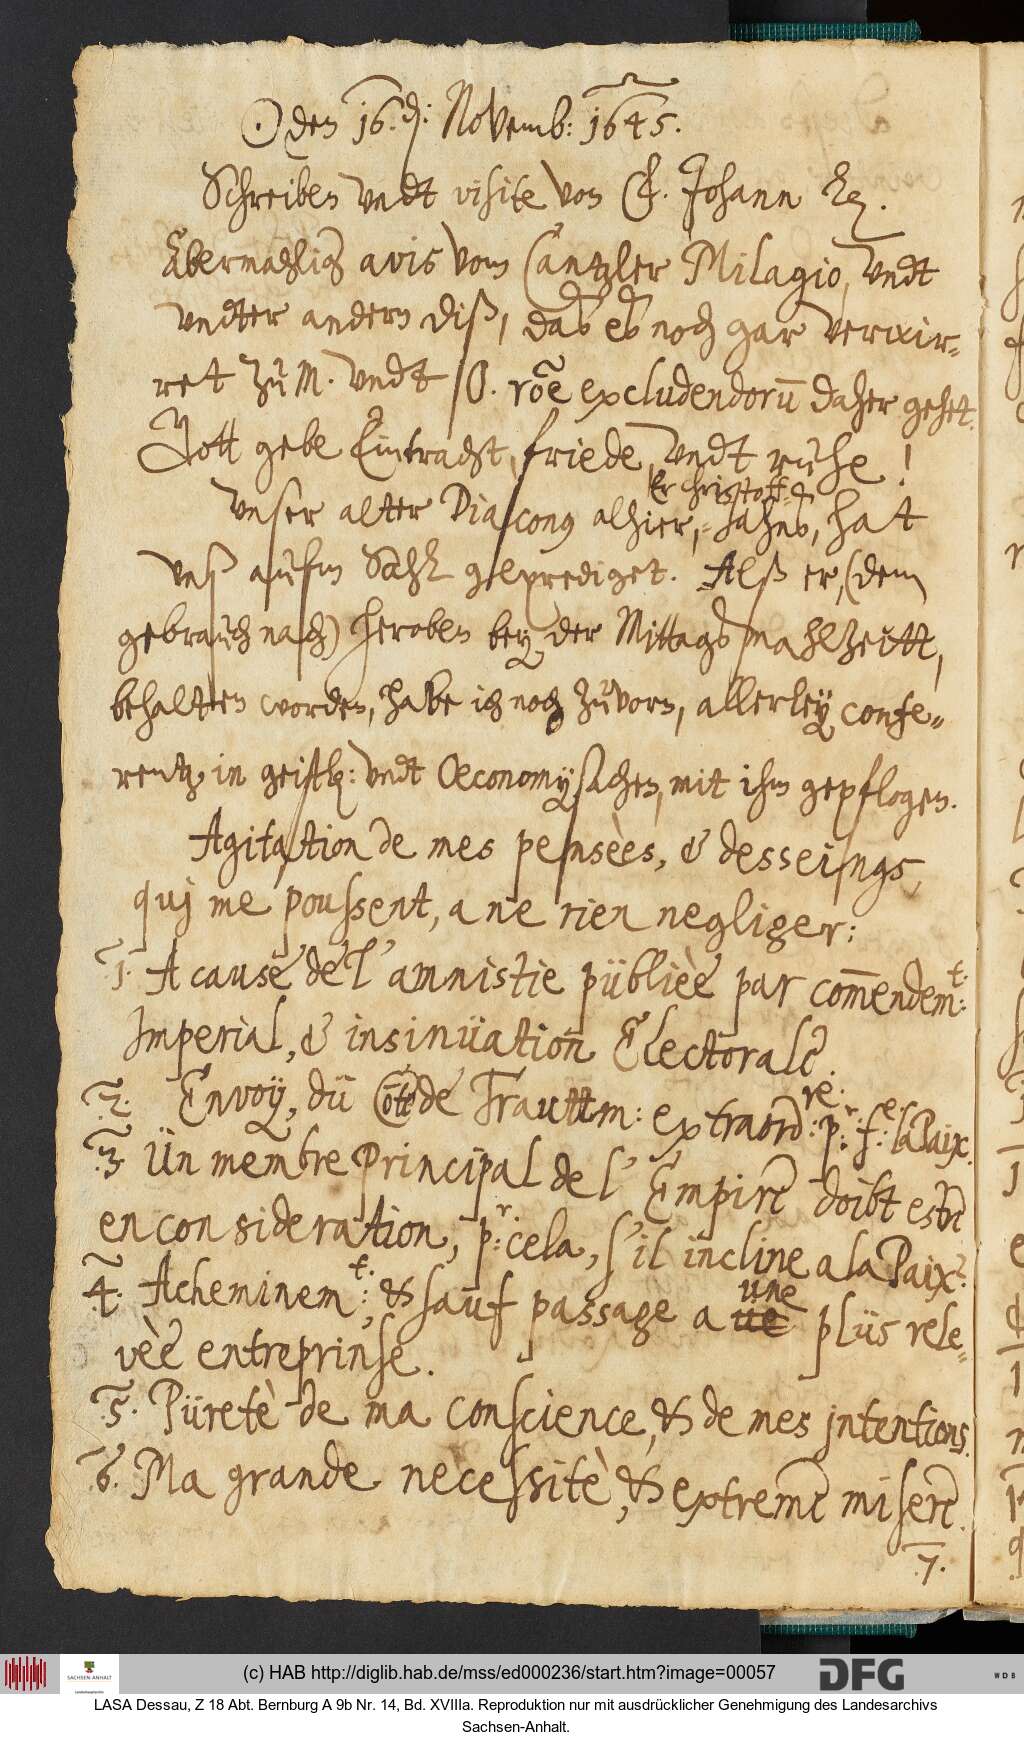 ☉ den 16. d: Novemb: 1645.
Schreiben undt visite von F. Johann
Abermahlig avis vom Cantzler Milagio, undt
undter andern diß, daß es noch gar verwir-
ret zu M. undt O. rōe excludendorū daher gehet.
Gott gebe Eintracht, friede, undt ruhe!
Er Christoff
Unser alter Diaconus alhier, =Jahns, hat
unß aufm Sahl geprediget. Alß er, (dem
gebrauch nach) heroben bey der Mittagsmahlzeitt,
behalten worden, habe ich noch zuvorn, allerley confe-
rentz, in geistl: undt Œconomysachen, mit ihm gepflogen.
Agitation de mes pensèes, & desseings,
quj me poussent, a ne rien negliger:
1. A cause de l'amnistie püblièe par com̄endem.t:
Imperial, & insinüation Electorale.
2. Envoÿ, dü Cōte de Trauttm: extraord.re: p.r: f.e: la Paix.
3. Ün membre Principal de l'Empire doibt estre
en consideration, p.r: cela, s'il incline a la Paix?
4. Acheminem.t:, & sauf passage a une plüs rele-
vèe entreprinse.
5. Püretè de ma conscience, & de mes jntentions.
6. Ma grande necessitè, & extreme misere.
7.
(c) HAB http://diglib.hab.de/mss/ed000236/start.htm?image=00057
SACHSEN-ANHALT
DFG
WDB
LASA Dessau, Z 18 Abt. Bernburg A 9b Nr. 14, Bd. XVIIIa. Reproduktion nur mit ausdrücklicher Genehmigung des Landesarchivs
Sachsen-Anhalt.